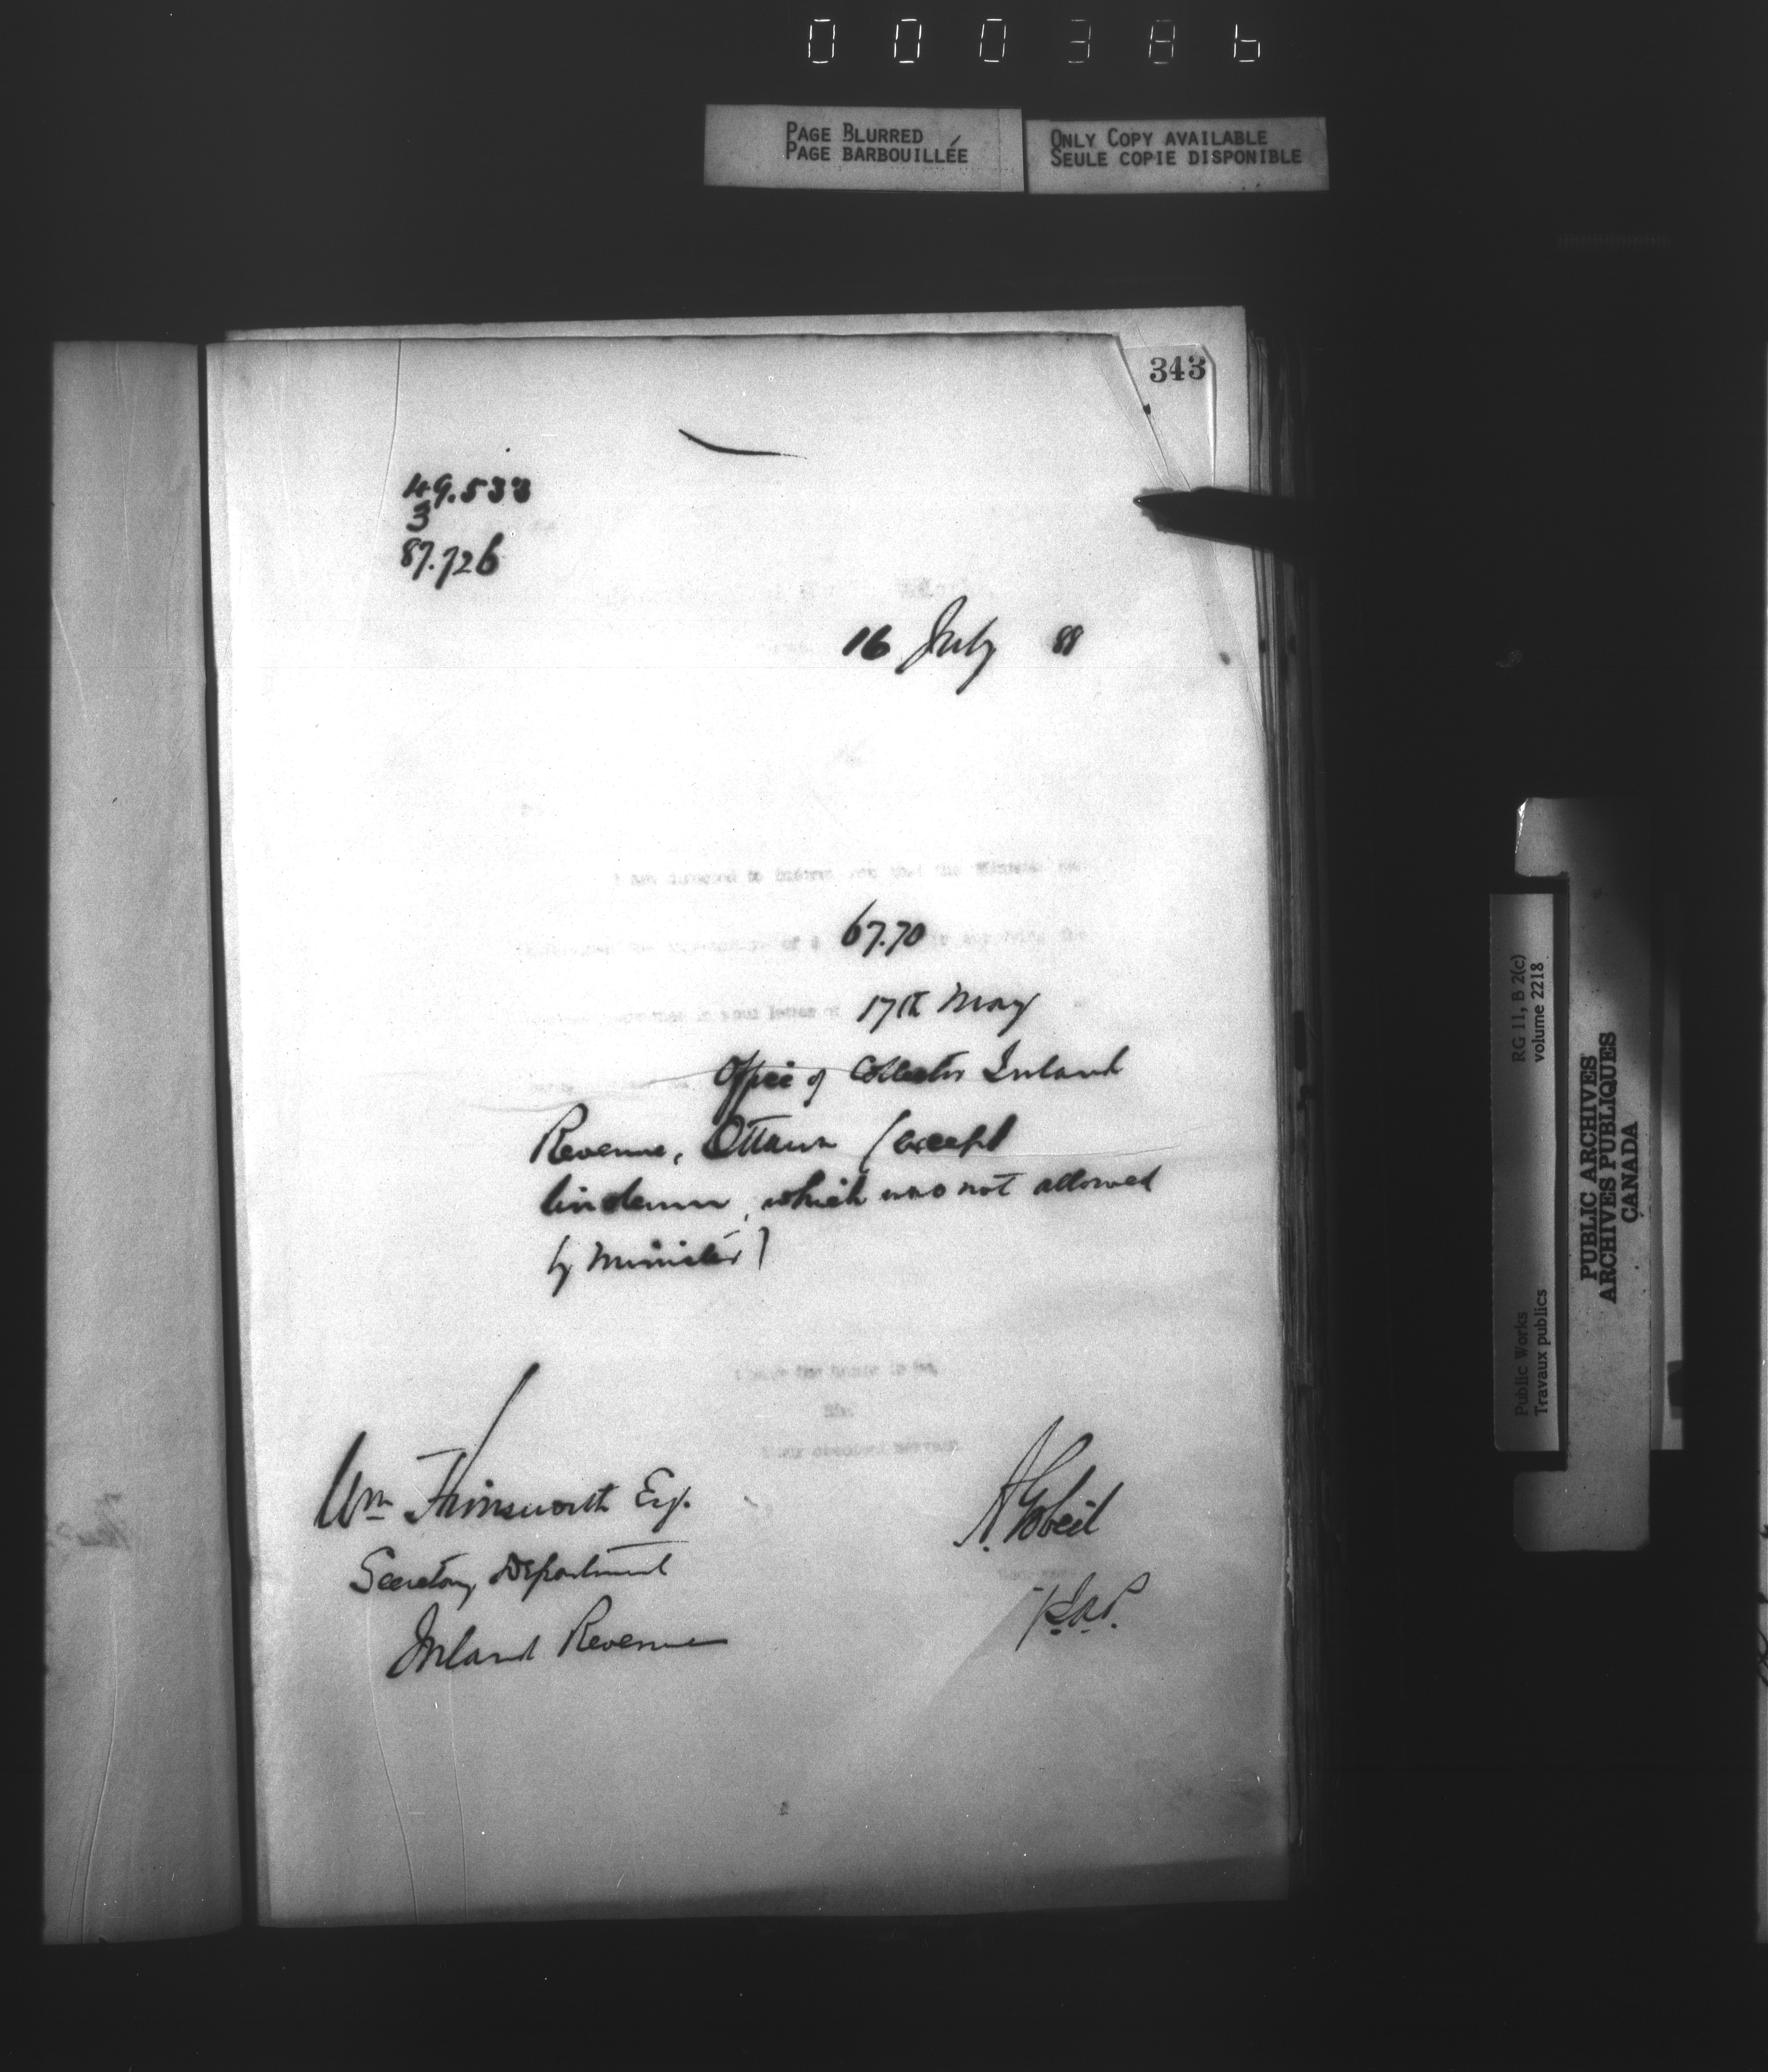 000386
PAGE BLURRED
PAGE BARBOUILLÉE
ONLY COPY AVAILABLE
SEULE COPIE DISPONIBLE
343
49.533
3
87.726
16 July 88
I am directed to inform you that the Minister
of $ 67.70
in your letter of 17th May
Office of Collector Inland
Revenue, Ottawa (except
linoleum, which was not allowed
by Minister)
I have the honor to be,
Sir,
Your obedient servant
Wm Himsworth Esq.
A. Gobeil
Secretary Department
Inland Revenue
RG 11, B 2(c)
volume 2218
Public Works
Travaux publics
PUBLIC ARCHIVES
ARCHIVES PUBLIQUES
CANADA